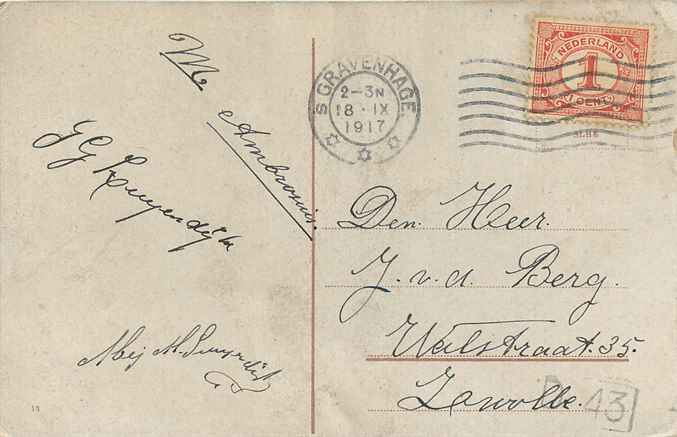 M
Ambrosius.
J G Kuyendijk
Mej M.
S GRAVENHAGE.
2-3N
18·IX
1917
NEDERLAND
1
1 CENT
Den Heer.
J. v. d. Berg.
Walstraat. 35.
Zwolle.
43